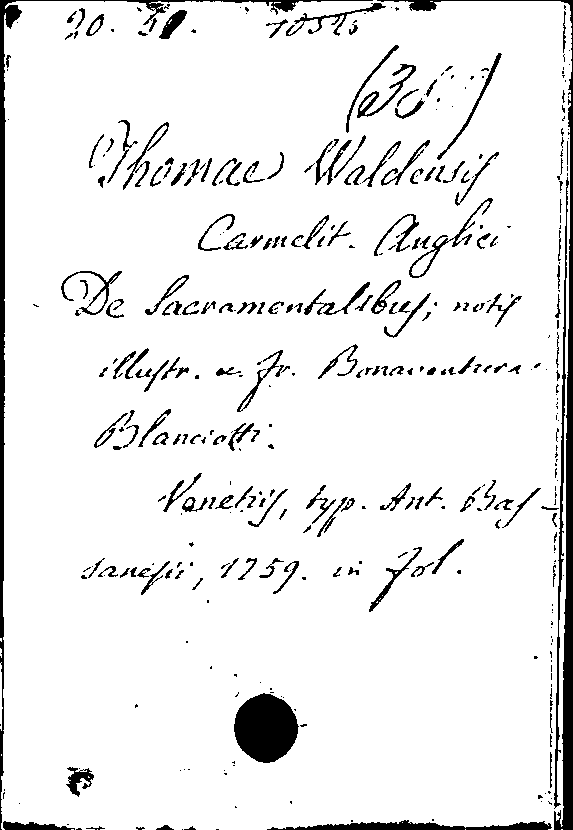 20. 51. 10525
(38.)
Thomae Waldensis
Carmelit. Anglici
De Sacramentalibus; notis
illustr. a Fr. Bonaventura
Blanciotti.
Venetiis, typ. Ant. Bas-
sanesii, 1759. in fol.